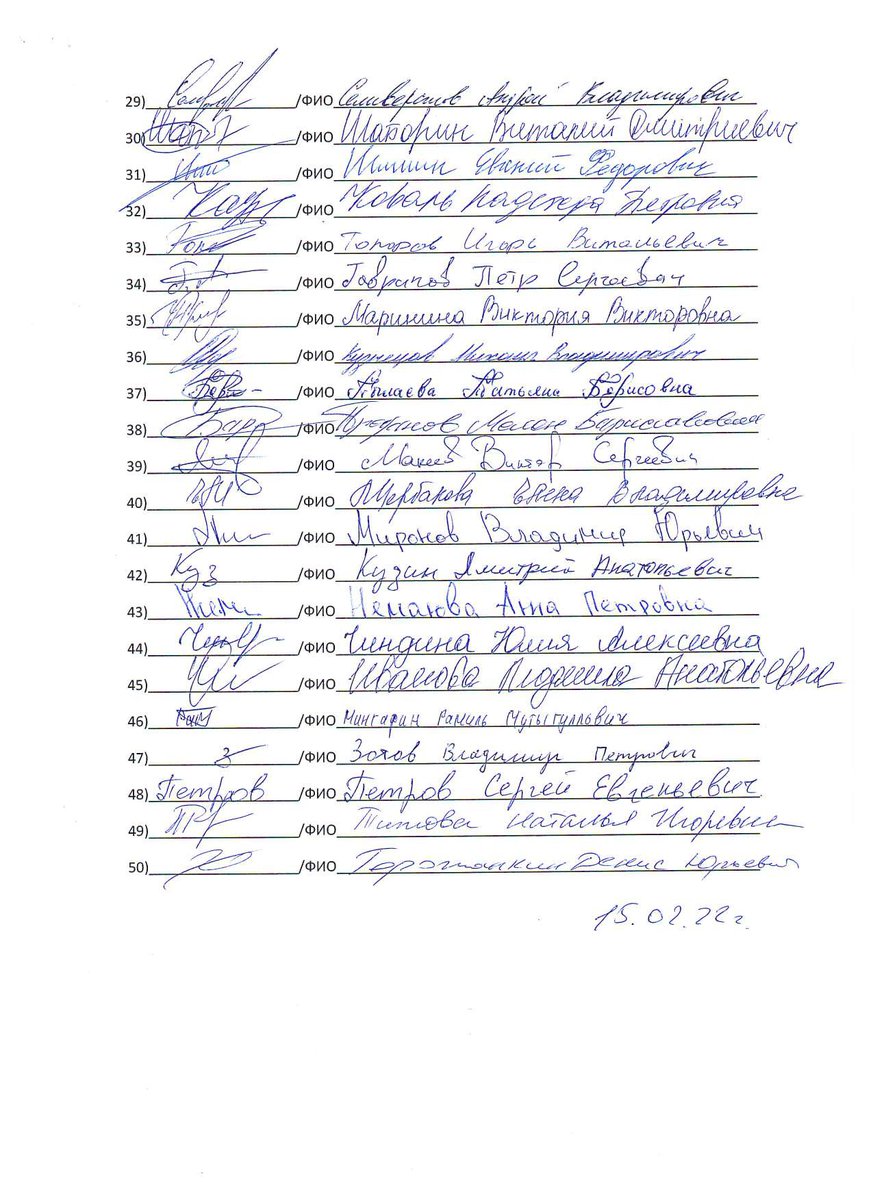 29) /ФИО Селиверстов Андрей Владимирович
30) Шап /ФИО Шапорин Виталий Дмитриевич
31) /ФИО Шишин Евгений Федорович
32) /ФИО Коваль Петровна
33) /ФИО Топоров Игорь Витальевич
34) /ФИО Гаврилов Пётр Сергеевич
35) /ФИО Маринина Виктория Викторовна
36) /ФИО Кузнецов Михаил Владимирович
37) /ФИО Татьяна Борисовна
38) /ФИО
39) /ФИО Макеев Виктор Сергеевич
40) /ФИО Щербакова Елена Владимировна
41) /ФИО Миронов Владимир Юрьевич
42) Куз /ФИО Кузин Дмитрий Анатольевич
43) /ФИО Анна Петровна
44) /ФИО Чиндина Юлия Алексеевна
45) /ФИО Иванова Людмила Анатольевна
46) /ФИО Рамиль
47) З /ФИО Зотов Владимир Петрович
48) Петров /ФИО Петров Сергей Евгеньевич
49) /ФИО Титова Наталья Игоревна
50) /ФИО Денис Юрьевич
15.02.22г.